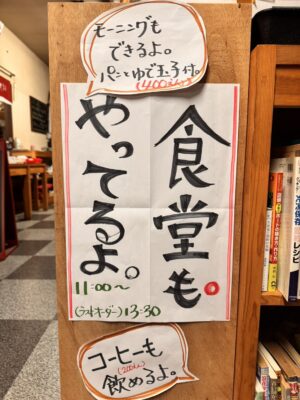 モーニングも
できるよ。
パンとゆで玉子付。
食堂も。
やってるよ。
11:00～
(ラストオーダー) 13:30
コーヒーも
飲めるよ。
冷凍保存
レシピ